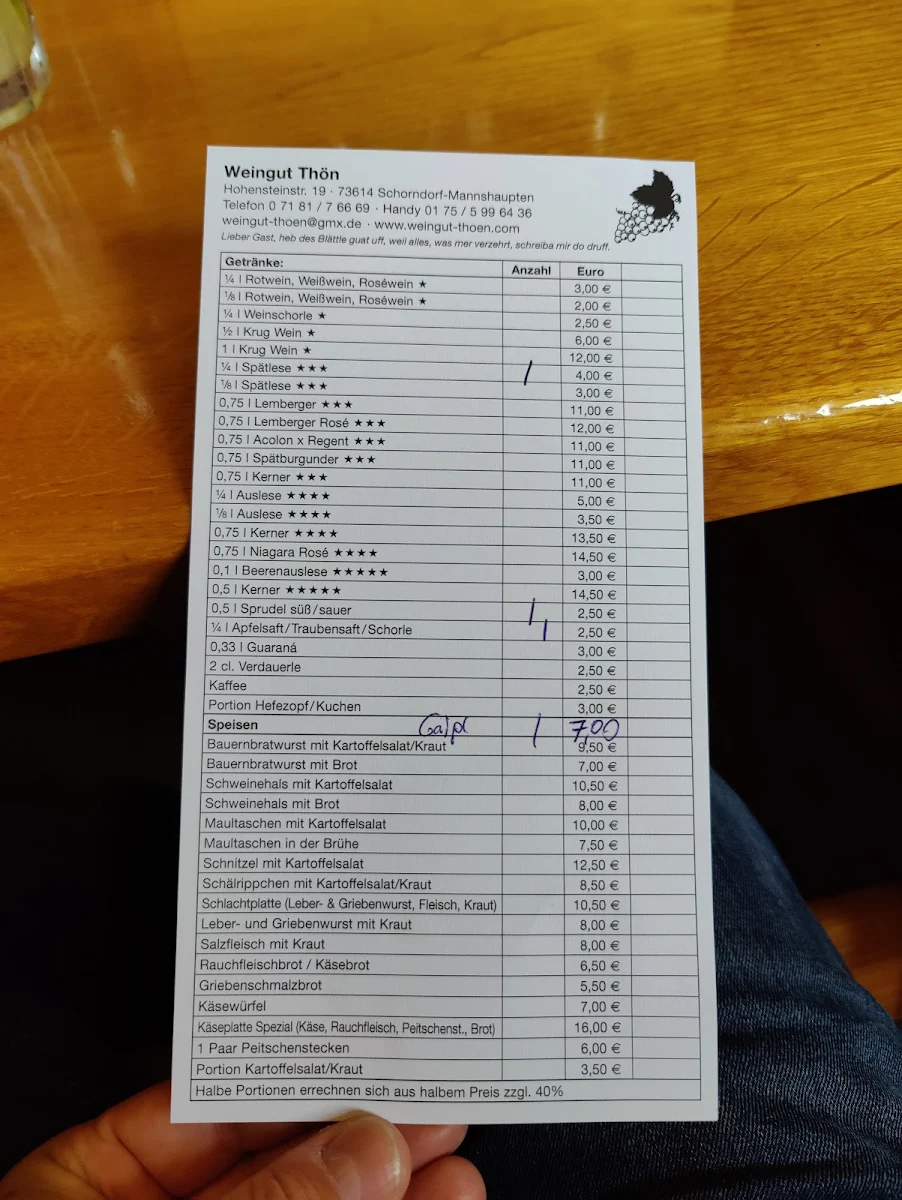 Weingut Thön
Hohensteinstr. 19 · 73614 Schorndorf-Mannshaupten
Telefon 0 71 81 / 7 66 69 · Handy 01 75 / 5 99 64 36
weingut-thoen@gmx.de · www.weingut-thoen.com
Lieber Gast, heb des Blättle guat uff, weil alles, was mer verzehrt, schreiba mir do druff.
Getränke: Anzahl Euro
¼ l Rotwein, Weißwein, Roséwein ★ 3,00 €
⅛ l Rotwein, Weißwein, Roséwein ★ 2,00 €
¼ l Weinschorle ★ 2,50 €
½ l Krug Wein ★ 6,00 €
1 l Krug Wein ★ 12,00 €
¼ l Spätlese ★★★ / 4,00 €
⅛ l Spätlese ★★★ 3,00 €
0,75 l Lemberger ★★★ 11,00 €
0,75 l Lemberger Rosé ★★★ 12,00 €
0,75 l Acolon x Regent ★★★ 11,00 €
0,75 l Spätburgunder ★★★ 11,00 €
0,75 l Kerner ★★★ 11,00 €
¼ l Auslese ★★★★ 5,00 €
⅛ l Auslese ★★★★ 3,50 €
0,75 l Kerner ★★★★ 13,50 €
0,75 l Niagara Rosé ★★★★ 14,50 €
0,1 l Beerenauslese ★★★★★ 3,00 €
0,5 l Kerner ★★★★★ 14,50 €
0,5 l Sprudel süß/sauer / 2,50 €
¼ l Apfelsaft/Traubensaft/Schorle / 2,50 €
0,33 l Guaraná 3,00 €
2 cl. Verdauerle 2,50 €
Kaffee 2,50 €
Portion Hefezopf/Kuchen 3,00 €
Speisen / 7,00
Bauernbratwurst mit Kartoffelsalat/Kraut 9,50 €
Bauernbratwurst mit Brot 7,00 €
Schweinehals mit Kartoffelsalat 10,50 €
Schweinehals mit Brot 8,00 €
Maultaschen mit Kartoffelsalat 10,00 €
Maultaschen in der Brühe 7,50 €
Schnitzel mit Kartoffelsalat 12,50 €
Schälrippchen mit Kartoffelsalat/Kraut 8,50 €
Schlachtplatte (Leber- & Griebenwurst, Fleisch, Kraut) 10,50 €
Leber- und Griebenwurst mit Kraut 8,00 €
Salzfleisch mit Kraut 8,00 €
Rauchfleischbrot / Käsebrot 6,50 €
Griebenschmalzbrot 5,50 €
Käsewürfel 7,00 €
Käseplatte Spezial (Käse, Rauchfleisch, Peitschenst., Brot) 16,00 €
1 Paar Peitschenstecken 6,00 €
Portion Kartoffelsalat/Kraut 3,50 €
Halbe Portionen errechnen sich aus halbem Preis zzgl. 40%